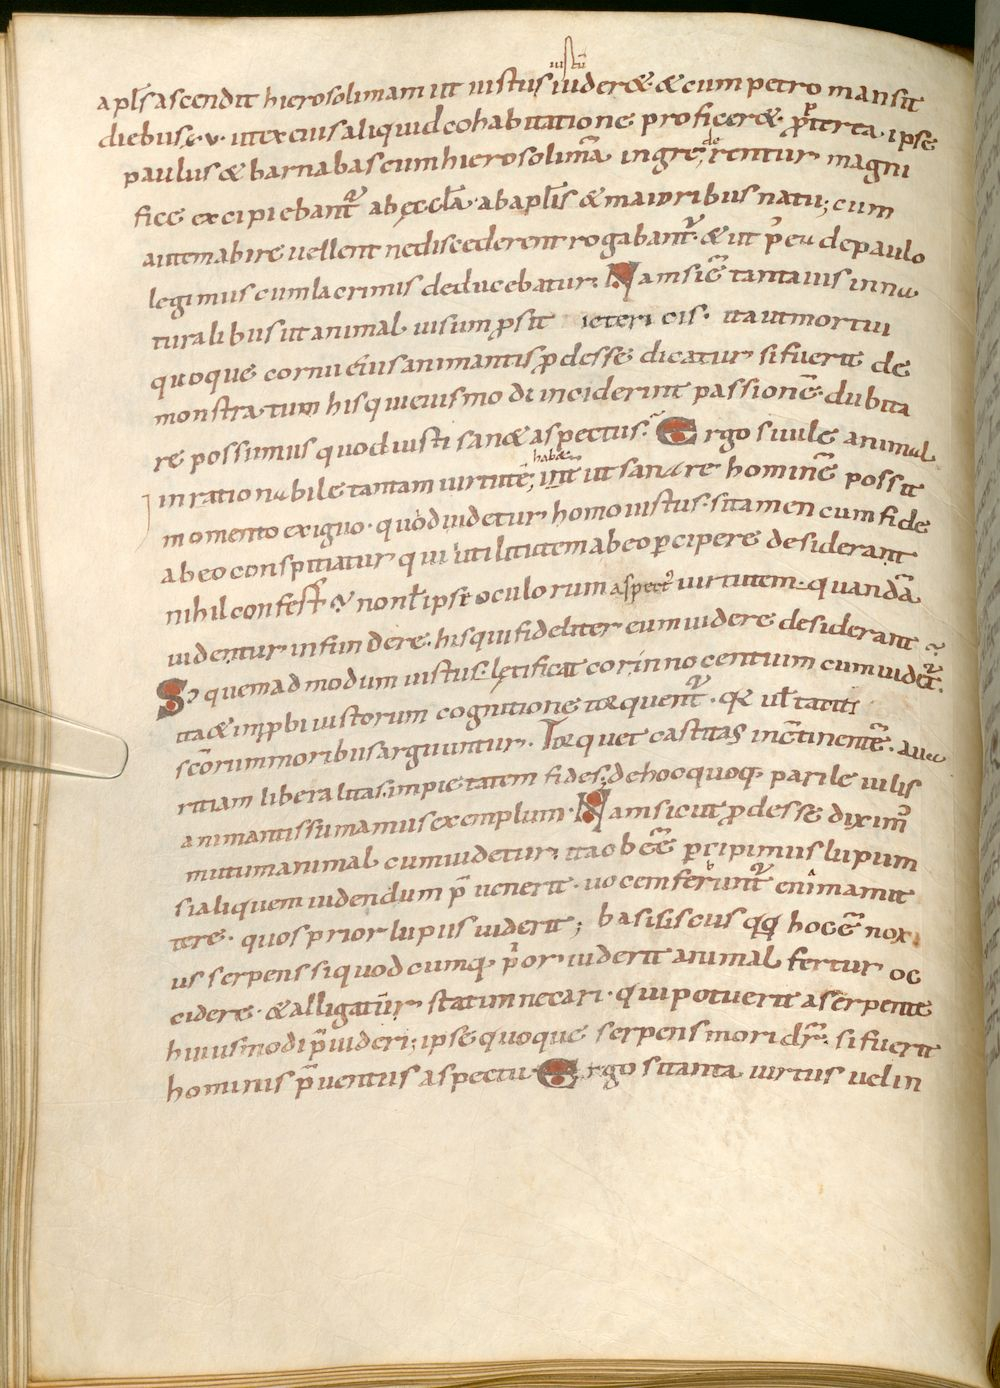 iustū
apl̅s ascendit hierosolimam ut iustus uider&. & cum petro mansit
diebus .v. ut ex eius aliquid cohabitatione proficer&. p̲terea ipse
paulus & barnabas cum hierosolimā ingrederentur magni
fice excipiebant᷑ ab ęccl̅a ab apl̅is & maioribus natu; cum
autem abire uellent ne discederent rogabant᷑. & ut de paulo
legimus cum lacrimis deducebatur. Nam sic̅ tanta uis in na
turalibus ut animal uisum p̲sit ictericis. ita ut mortui
quoque cornu eius animantis p̲desse dicatur si fuerit de
monstratum his qui eiusmodi inciderint passionē. dubita
re possumus quod iusti san& aspectus. Ergo si uile animal
habet
inrationabile tantam uirtutē; ut sanare hominē possit
momento exiguo. quod uidetur homo iustus. si tamen cum fide
ab eo conspitiatur qui utilitatem ab eo p̲cipere desiderant
nihil confest non ipse oculorum aspect᷒ uirtutem. quandā
uidentur infundere. his qui fideliter eum uidere desiderant
Sᵢ quemadmodum iustus lętificat cor innocentium cum uidet᷑.
ita & imp̲bi iustorum cognitione torquent᷑. & uł taciti
sc̅orum moribus arguuntur. Torquet castitas incontinentē. aua
ritiam liberalitas. impietatem fides. de hoc quoq. parile uilis
animantis sumamus exemplum. Nam sicut p̲desse diximꝰ
mutum animal cum uidetur. ita obēē p̲cipimus lupum
si aliquem uidendum p̄uenerit. uocem ferunt᷑ enim amit
tere. quos prior lupus uiderit; basiliscus qq̲ hoc ē nox
us serpens si quodcumq. prior uiderit animal fertur oc
cidere. & alligatur statim necari. qui potuerit a serpente
huiusmodi p̄uideri; ipse quoque serpens mori dr̅. si fuerit
hominis p̄uentus aspectu. Ergo si tanta uirtus uel in